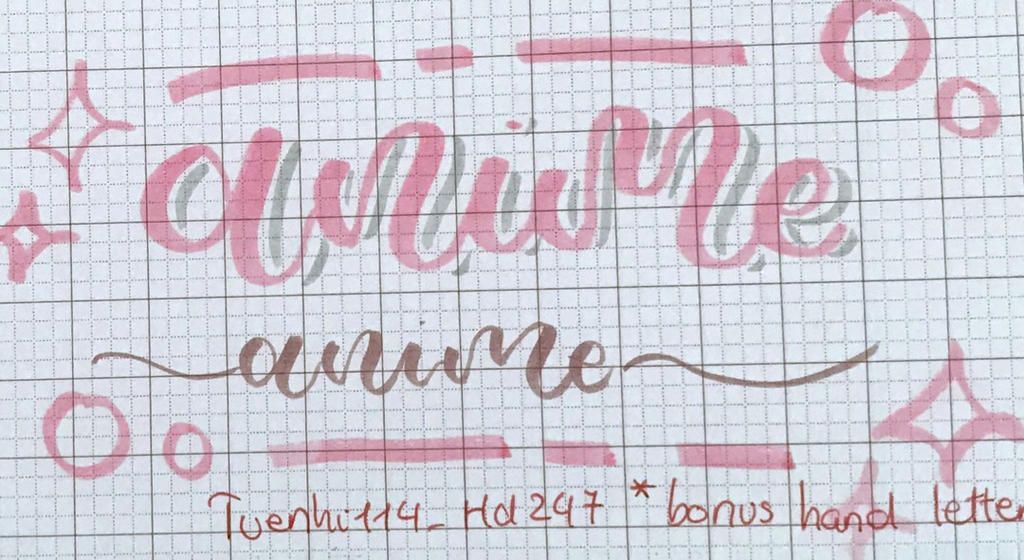 anime
anime
Tuenhi114_Hd247 *bonus hand letter